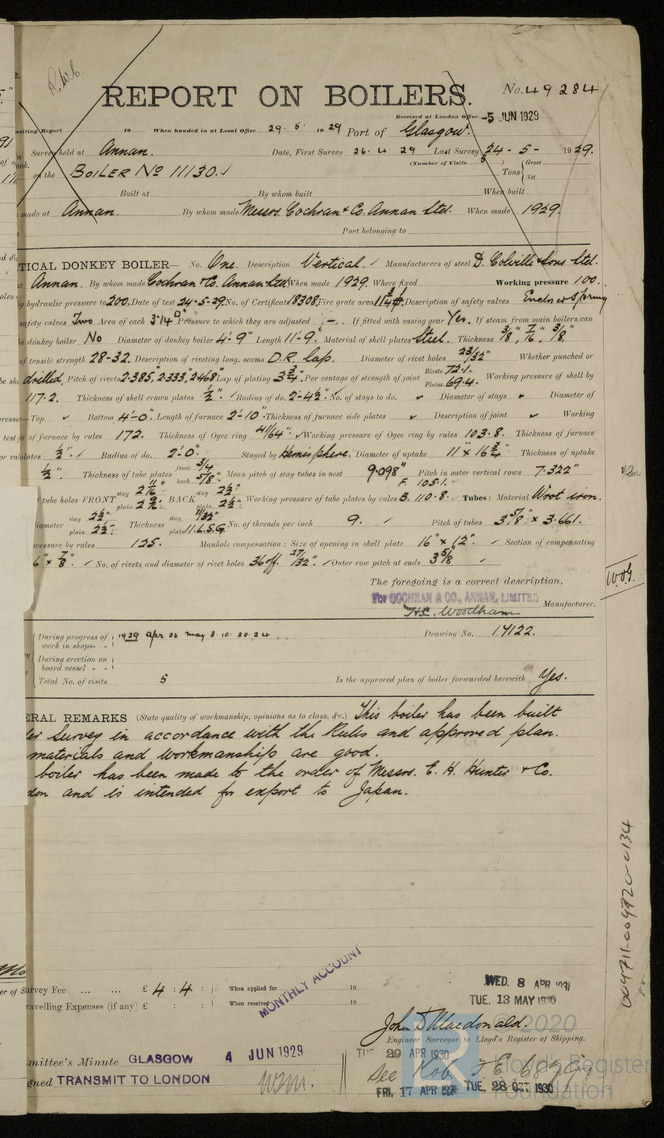 REPORT ON BOILERS.
No. 49284
Received at London Office -5 JUN 1929
Writing Report 19 When handed in at Local Office 29.5.1929 Port of Glasgow.
Survey held at Annan. Date, First Survey 26.4.29 Last Survey 24-5-1929.
(Number of Visits 5)
on the BOILER No 11130. Tons Gross Net
Built at By whom built When built
made at Annan. By whom made Messrs. Cochran & Co. Annan Ltd. When made 1929.
Port belonging to
TICAL DONKEY BOILER— No. One. Description Vertical. Manufacturers of steel D. Colville & Sons Ltd.
Annan. By whom made Cochran & Co. Annan Ltd. When made 1929. Where fixed Working pressure 100.
hydraulic pressure to 200. Date of test 24-5-29. No. of Certificate 18308. Fire grate area Description of safety valves Enclosed Spring
safety valves Two Area of each 3.14 Pressure to which they are adjusted - If fitted with easing gear Yes. If steam from main boilers can
donkey boiler No Diameter of donkey boiler 4'-9" Length 11'-9" Material of shell plates Steel. Thickness 3/8" 7/16" 3/8"
of tensile strength 28-32. Description of riveting long. seams D.R. lap. Diameter of rivet holes 23/32" Whether punched or
drilled, Pitch of rivets 2.385" 2.333" 2.468" Lap of plating 3 3/4" Per centage of strength of joint Rivets 72.1. Plates 69.4. Working pressure of shell by
117.2. Thickness of shell crown plates 1/2". Radius of do. 2'-4 1/2" No. of stays to do. Diameter of stays Diameter of
Top Bottom 4'-0". Length of furnace 2'-10". Thickness of furnace side plates Description of joint Working
of furnace by rules 172. Thickness of Ogee ring 41/64". Working pressure of Ogee ring by rules 103.8. Thickness of furnace
plates 1/2". Radius of do. 2'-0" Stayed by Hemisphere. Diameter of uptake 11 x 16 3/4" Thickness of uptake
1/2". Thickness of tube plates front 3/4" back 5/8" Mean pitch of stay tubes in nest 9.098" Pitch in outer vertical rows 7.322"
F. 105.1.
tube holes FRONT stay 2 11/16" plain 2 9/16" BACK stay 2 1/2" plain 2 1/2" Working pressure of tube plates by rules B. 110.8. Tubes: Material Wrot iron.
iameter stay 2 1/2" plain 2 1/2" Thickness stay 11/32" plain 11 L.S.G. No. of threads per inch 9. Pitch of tubes 3 5/8" x 3.661.
pressure by rules 125. Manhole compensation: Size of opening in shell plate 16" x 12". Section of compensating
6" x 7/8". No. of rivets and diameter of rivet holes 36 off. 27/32". Outer row pitch at ends 3 5/8
The foregoing is a correct description,
For COCHRAN & CO., ANNAN, LIMITED
H.C. Woodham Manufacturer.
During progress of work in shops - - 1929 Apr 26 May 3.10.20.24. Drawing No. 17122.
During erection on board vessel - -
Total No. of visits 5 Is the approved plan of boiler forwarded herewith Yes.
ERAL REMARKS (State quality of workmanship, opinions as to class, &c.) This boiler has been built
der Survey in accordance with the Rules and approved plan.
materials and workmanship are good.
boiler has been made to the order of Messrs. E. H. Hunter & Co.
don and is intended for export to Japan.
004711-004720-0134
Survey Fee ... ... £ 4 : 4 : When applied for 19
ravelling Expenses (if any) £ : : When received 19
MONTHLY ACCOUNT
WED. 8 APR 1931
TUE. 13 MAY 1930
John D Macdonald.
Engineer Surveyor to Lloyd's Register of Shipping.
mmittee's Minute GLASGOW 4 JUN 1929
signed TRANSMIT TO LONDON
TUE 29 APR 1930
See Kob
FRI. 17 APR
TUE. 28 OCT 1930
© 2020
Lloyd's Register
Foundation